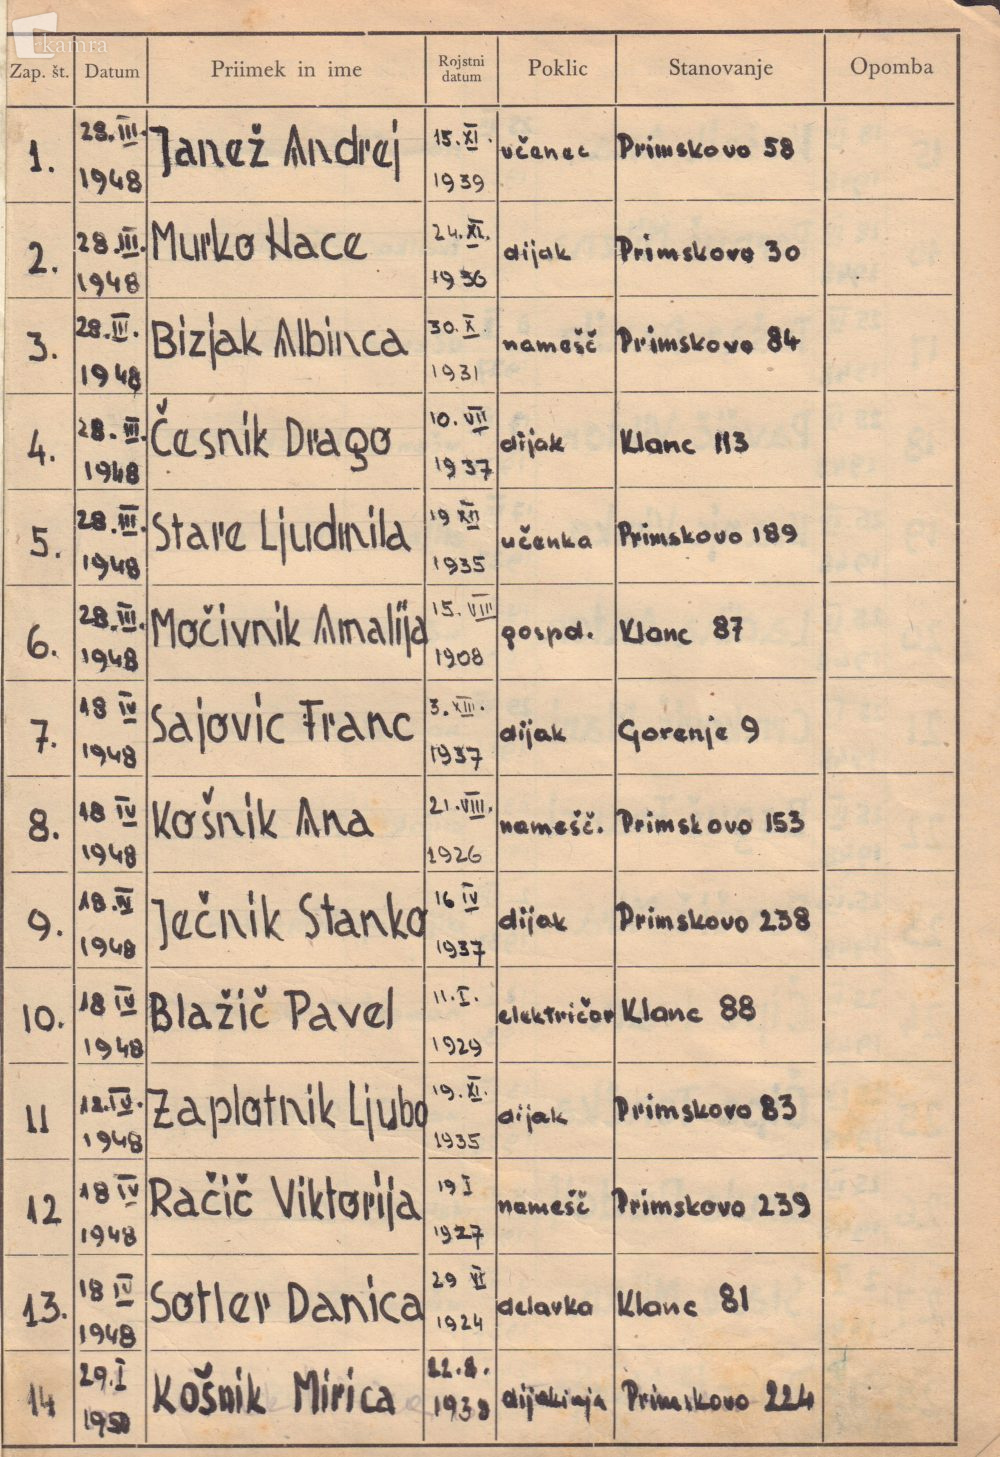 kamra
Zap. št. Datum Priimek in ime Rojstni datum Poklic Stanovanje Opomba
1. 28. III. 1948 Janež Andrej 15. XI. 1939 učenec Primskovo 58
2. 28. III. 1948 Murko Nace 24. XI. 1936 dijak Primskovo 30
3. 28. III. 1948 Bizjak Albinca 30. X. 1931 namešč Primskovo 84
4. 28. III. 1948 Česnik Drago 10. VII 1937 dijak Klanc 113
5. 28. III. 1948 Stare Ljudmila 19 XII 1935 učenka Primskovo 189
6. 28. III. 1948 Močivnik Amalija 15. VIII 1908 gospd. Klanc 87
7. 18 IV 1948 Sajovic Franc 3. XII. 1937 dijak Gorenje 9
8. 18 IV 1948 Košnik Ana 21. VIII. 1926 namešč. Primskovo 153
9. 18. IV 1948 Ječnik Stanko 16 IV 1937 dijak Primskovo 238
10. 18 IV 1948 Blažič Pavel 11. I. 1929 električar Klanc 88
11 18. IV. 1948 Zaplotnik Ljubo 19. XI. 1935 dijak Primskovo 83
12 18 IV 1948 Račič Viktorija 19 I 1927 namešč Primskovo 239
13. 18 IV 1948 Sotler Danica 29 VI 1924 delavka Klanc 81
14 29. I 1950 Košnik Mirica 22. 8. 1938 dijakinja Primskovo 224